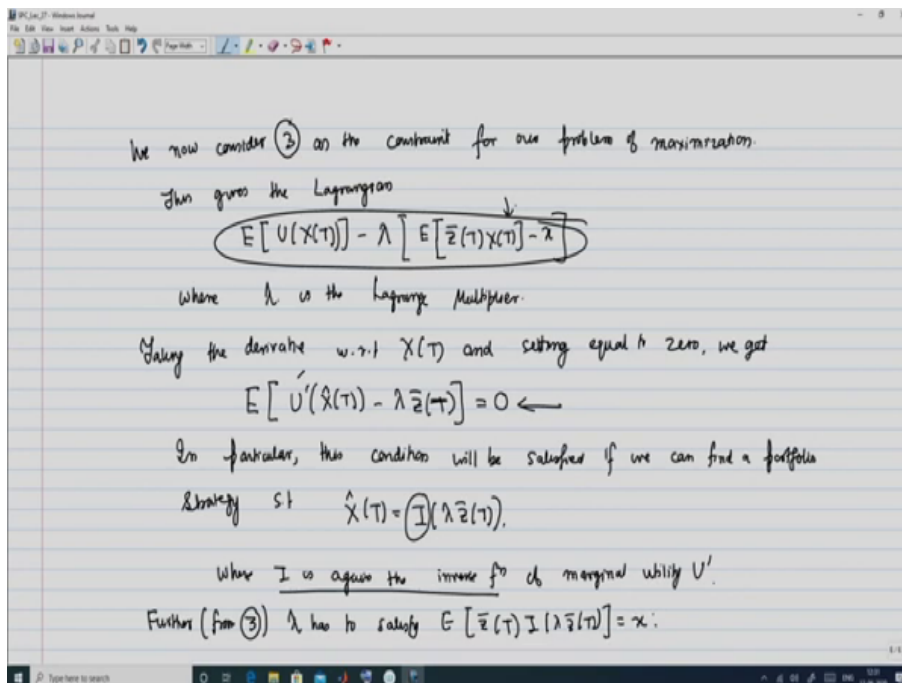 SPC_Lec_27 - Windows Journal
File Edit View Insert Actions Tools Help
Page Width
We now consider (3) as the constraint for our problem of maximization.
This gives the Lagrangian
E[U(X(T))] - λ[E[z̄(T)X(T)] - x]
where λ is the Lagrange Multiplier.
Taking the derivative w.r.t X(T) and setting equal to zero, we get
E[U'(X̂(T)) - λ z̄(T)] = 0 ←
In particular, this condition will be satisfied if we can find a portfolio
strategy s.t X̂(T) = I(λ z̄(T)).
Where I is again the inverse fn of marginal utility U'.
Further (from (3)) λ has to satisfy E[z̄(T) I(λ z̄(T))] = x.
Type here to search
ENG